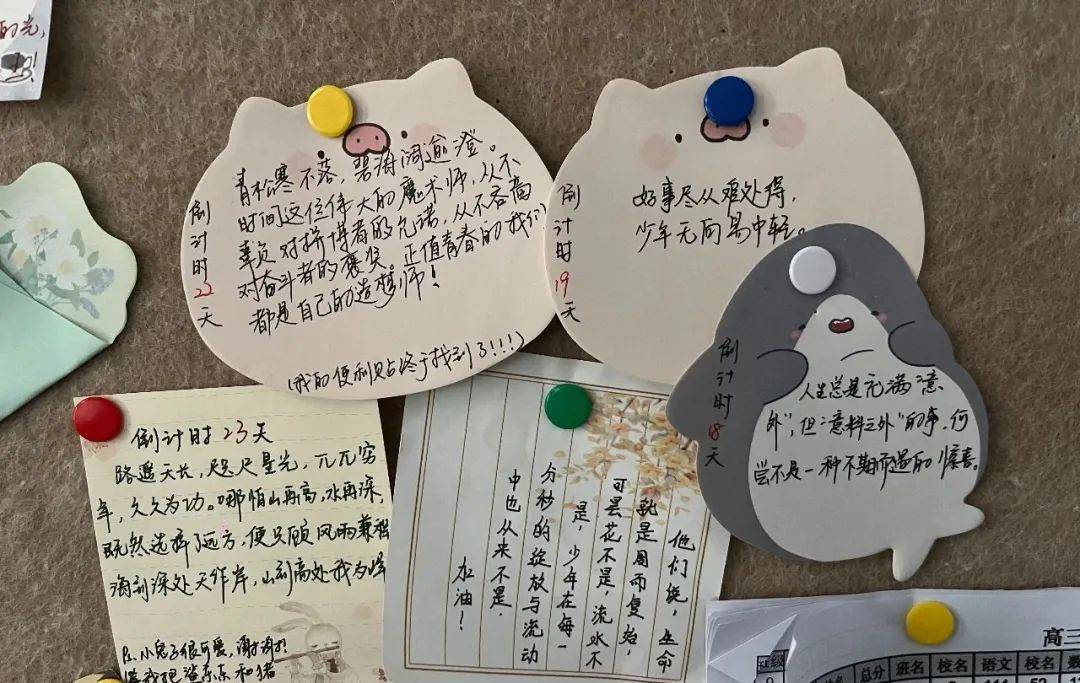 的光,
倒计时22天
青松寒不落，碧海阔逾澄。
时间这位伟大的魔术师，从不
辜负对拼博者的允诺，从不吝啬
对奋斗者的褒奖。正值青春的我们
都是自己的造梦师！
(我的便利贴终于找到了!!!)
倒计时19天
好事尽从难处得，
少年无向易中轻。
倒计时18天
人生总是充满意
外"，但"意料之外"的事，何
尝不是一种不期而遇的惊喜。
倒计时23天
路遥天长，咫尺星光，兀兀穷
年，久久为功。哪怕山再高，水再深，
既然选择了远方，便只顾风雨兼程
海到深处天作岸，山到高处我为峰
P.S.小兔子很可爱，谢谢!
他们绕，生命
就是周而复始，
可昙花不是，流水不
是，少年在每一
分秒的绽放与流动
中也从来不是.
加油！
高三
班级
总分 班名 校名 语文 校名 数